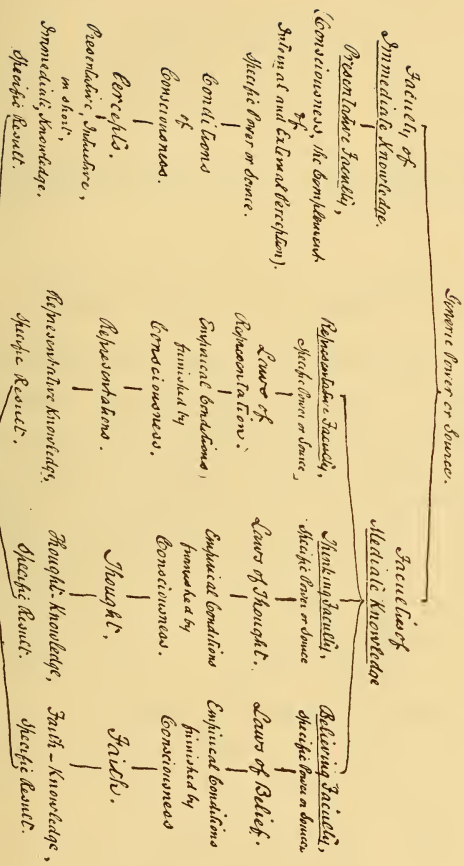 Generic Power or Source.
Faculty of
Immediate Knowledge.
Presentative Faculty,
(Consciousness, the Complement
of
Internal and External Perception).
Specific Power or Source.
Conditions
of
Consciousness.
Percepts.
Presentative, Intuitive,
in short,
Immediate, Knowledge,
Specific Result.
Faculties of
Mediate Knowledge
Representative Faculty,
Specific Power or Source,
Laws of
Representation.
Empirical Conditions,
furnished by
Consciousness.
Representations.
Representative Knowledge,
Specific Result.
Thinking Faculty,
Specific Power or Source
Laws of Thought.
Empirical Conditions
furnished by
Consciousness.
Thought.
Thought-Knowledge,
Specific Result.
Believing Faculty,
Specific Power or Source
Laws of Belief.
Empirical Conditions
furnished by
Consciousness
Faith.
Faith-Knowledge,
Specific Result.